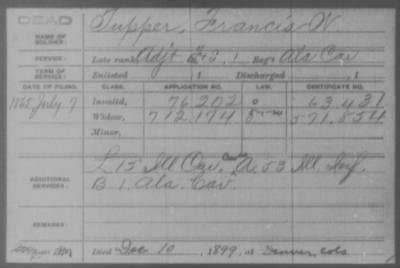 DEAD
NAME OF SOLDIER: Tupper, Francis W.
SERVICE: Late rank, Adjt 1 Reg't Ala Cav
TERM OF SERVICE: Enlisted , 1 Discharged , 1
DATE OF FILING. CLASS. APPLICATION NO. LAW. CERTIFICATE NO.
1865 July 7 Invalid, 76202 0 63431
Widow, 712,174 571,854
Minor,
L 15 Ill Cav. A. 53 Ill. Inf.
ADDITIONAL SERVICES: B 1. Ala. Cav.
REMARKS:
Died Dec 10, 1899, at Denver, Colo